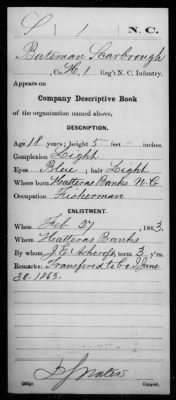 S 1 N.C.
Bateman Scarbrough
, Co. H, 1 Reg't N. C. Infantry.
Appears on
Company Descriptive Book
of the organization named above.
DESCRIPTION.
Age 18 years; height 5 feet – inches.
Complexion Light
Eyes Blue; hair Light
Where born Hatteras Banks N. Co
Occupation Fisherman
ENLISTMENT.
When Feb 27, 1863.
Where Hatteras Banks
By whom J. E. Ashcroft; term 3 y'rs.
Remarks: Transfered to Co. June
30. 1863.
Copyist.